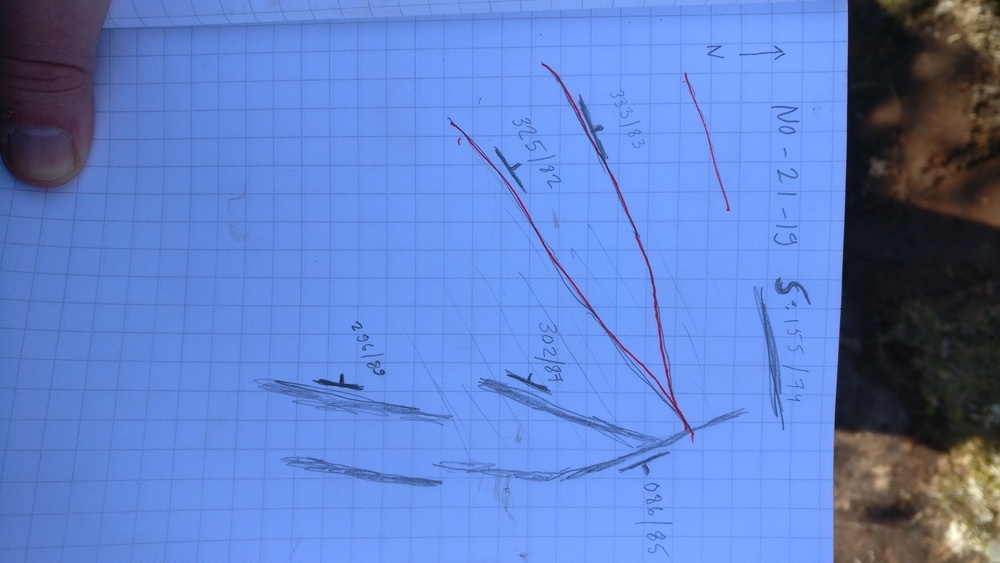 N
No-21-19
S:155/74
333/83
325/82
302/87
296/89
086/85